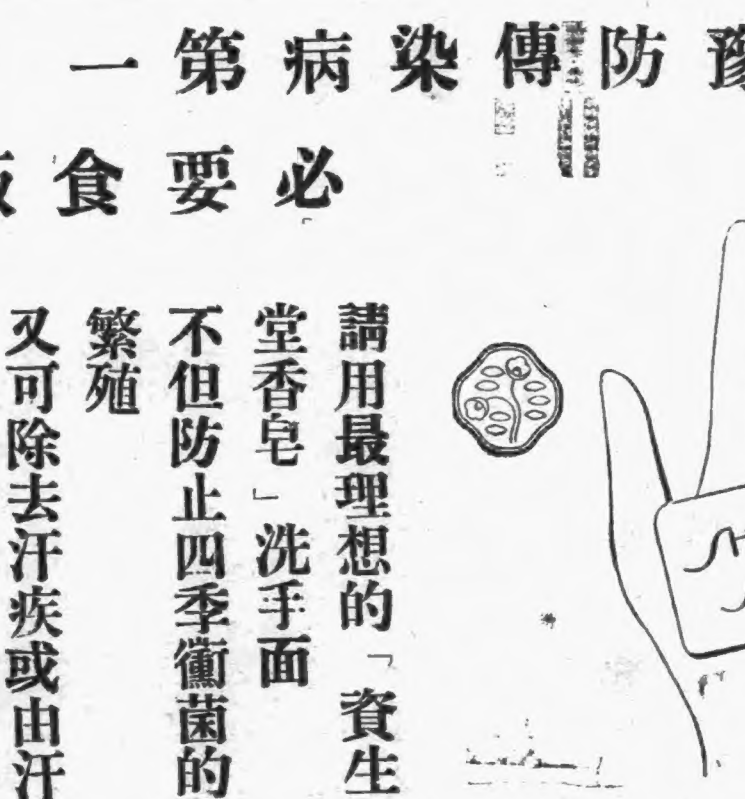 豫防傳染病第一
必要食飯
請用最理想的「資生
堂香皂」洗手面
不但防止四季黴菌的
繁殖
又可除去汗疾或由汗